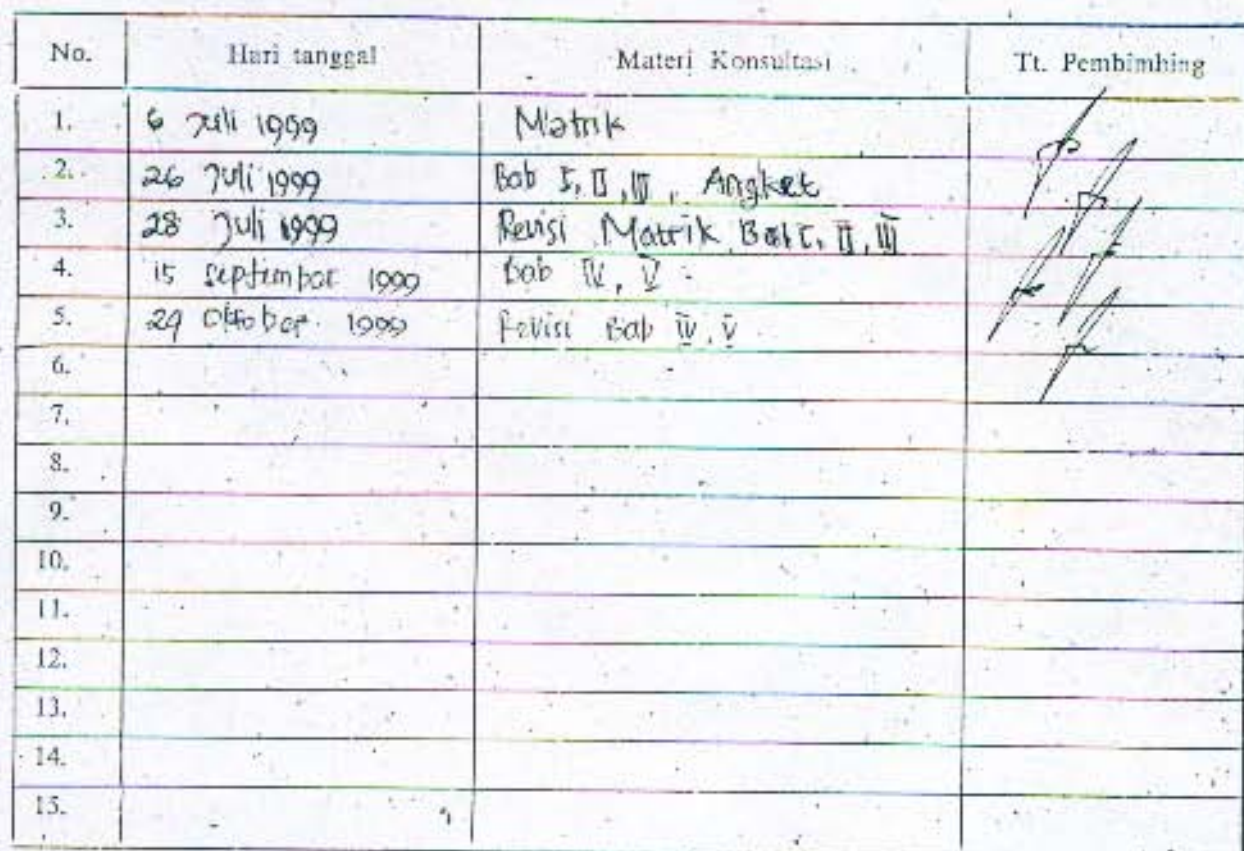 No. Hari tanggal Materi Konsultasi Tt. Pembimbing
1. 6 Juli 1999 Matrik
2. 26 Juli 1999 Bab I, II, III, Angket
3. 28 Juli 1999 Revisi Matrik Bab I, II, III
4. 15 September 1999 Bab IV, V
5. 29 Oktober 1999 Revisi Bab IV, V
6.
7.
8.
9.
10.
11.
12.
13.
14.
15.